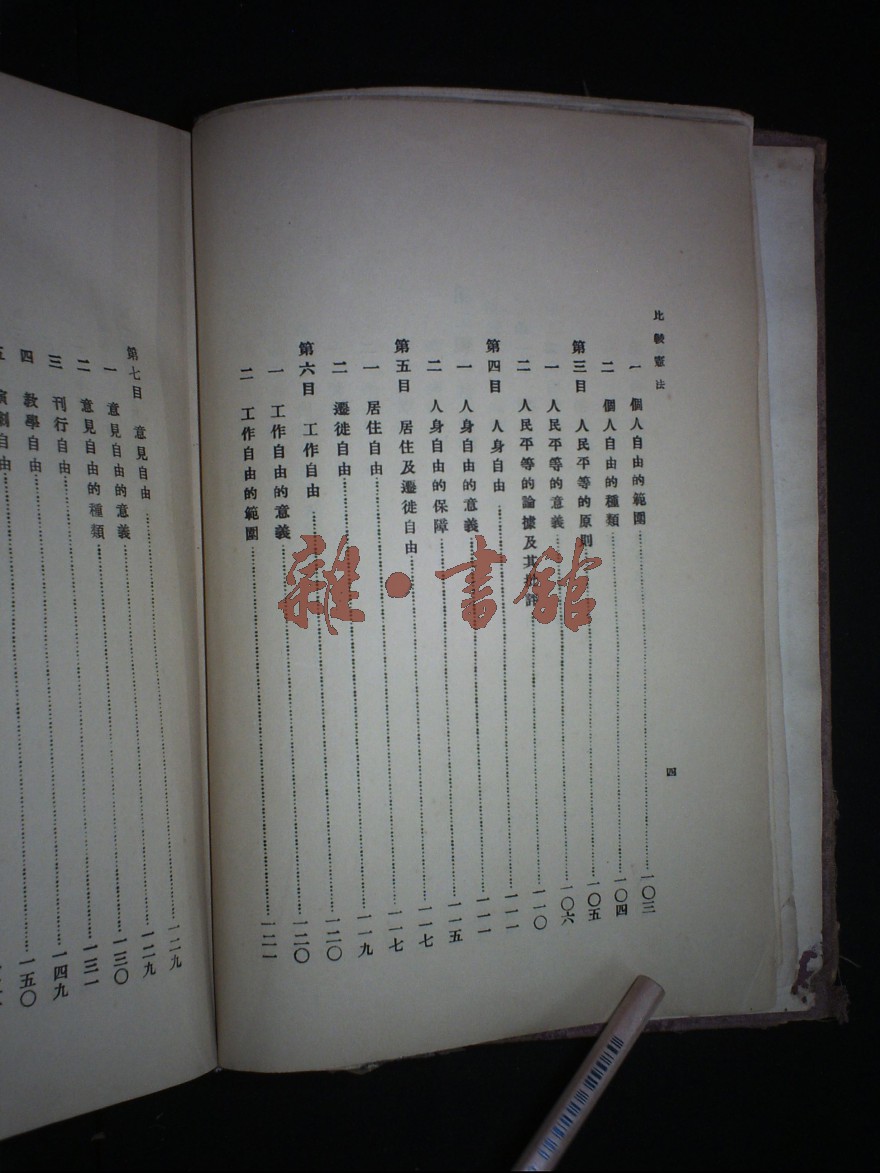 比較憲法
四
一 個人自由的範圍……一〇三
二 個人自由的種類……一〇四
第三目 人民平等的原則……一〇五
一 人民平等的意義……一〇六
二 人民平等的論據及其批評……一一〇
第四目 人身自由……一一一
一 人身自由的意義……一一一
二 人身自由的保障……一一五
第五目 居住及遷徙自由……一一七
一 居住自由……一一七
二 遷徙自由……一一九
第六目 工作自由……一二〇
一 工作自由的意義……一二〇
二 工作自由的範圍……一二一
第七目 意見自由……一二九
一 意見自由的意義……一二九
二 意見自由的種類……一三〇
三 刊行自由……一三一
四 教學自由……一四九
五 演劇自由……一五〇
雜·書館